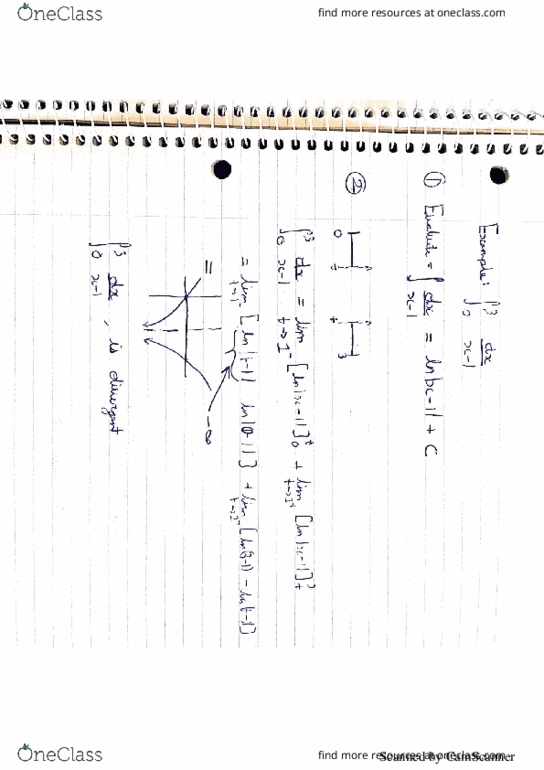 OneClass
find more resources at oneclass.com
Example: ∫₀³ dx/(x-1)
① Evaluate = ∫ dx/(x-1) = ln|x-1| + C
②
0 t t 3
∫₀³ dx/(x-1) = lim t→1⁻ [ln|x-1|]₀ᵗ + lim t→1⁺ [ln|x-1|]ₜ³
= lim t→1⁻ [ln|t-1| ln|0-1|] + lim [ln(3-1) - ln t-1]
= -∞
∫₀³ dx/(x-1) , is divergent
OneClass
find more resources at oneclass.com
Scanned by CamScanner